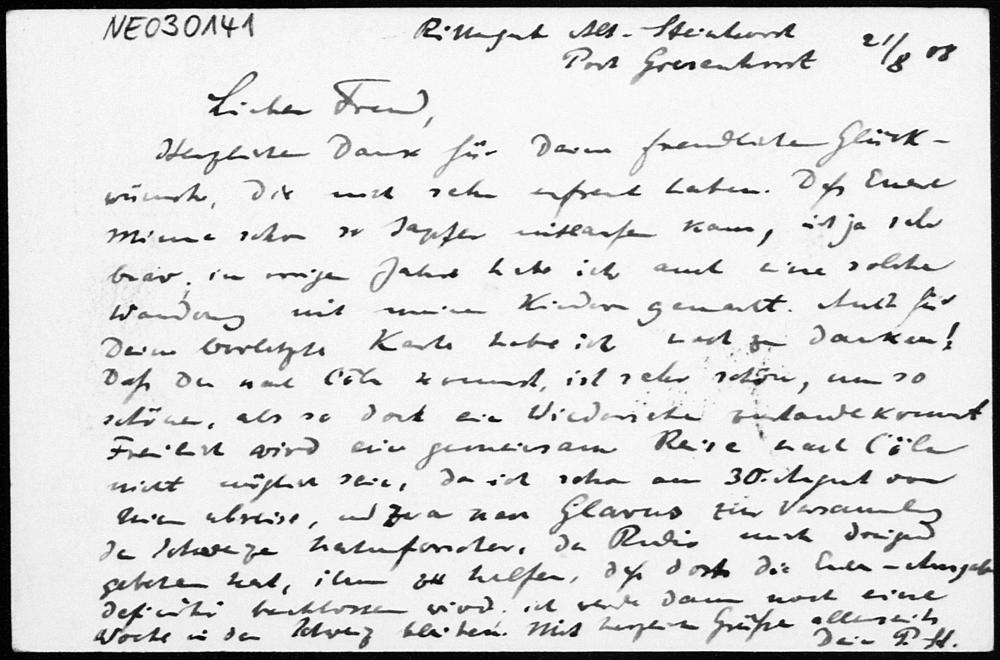 NE030141
Rittergut Alt-Steinhorst
Post Gresenhorst 21/8 08
Lieber Freund,
Herzlichen Dank für Deine freundlichen Glück-
wünsche, die mich sehr erfreut haben. Daß Euere
Minna schon so tapfer mitlaufen kann, ist ja sehr
brav; im vorigen Jahre habe ich auch eine solche
Wanderung mit meinen Kindern gemacht. Auch für
Deine vorletzte Karte habe ich noch zu danken!
Daß Du nach Cöln kommst, ist sehr schön, um so
schöner, als so doch ein Wiedersehen zustande kommt
Freilich wird eine gemeinsame Reise nach Cöln
nicht möglich sein, da ich schon am 30. August von
hier abreise, und zwar nach Glarus zur Versammlung
der Schweizer Naturforscher, da Rudio mich dringend
gebeten hat, ihm zu helfen, daß dort die Euler-Ausgabe
definitiv beschlossen wird. ich werde dann noch eine
Woche in der Schweiz bleiben. Mit herzlichen Grüßen allerseits
Dein P. St.